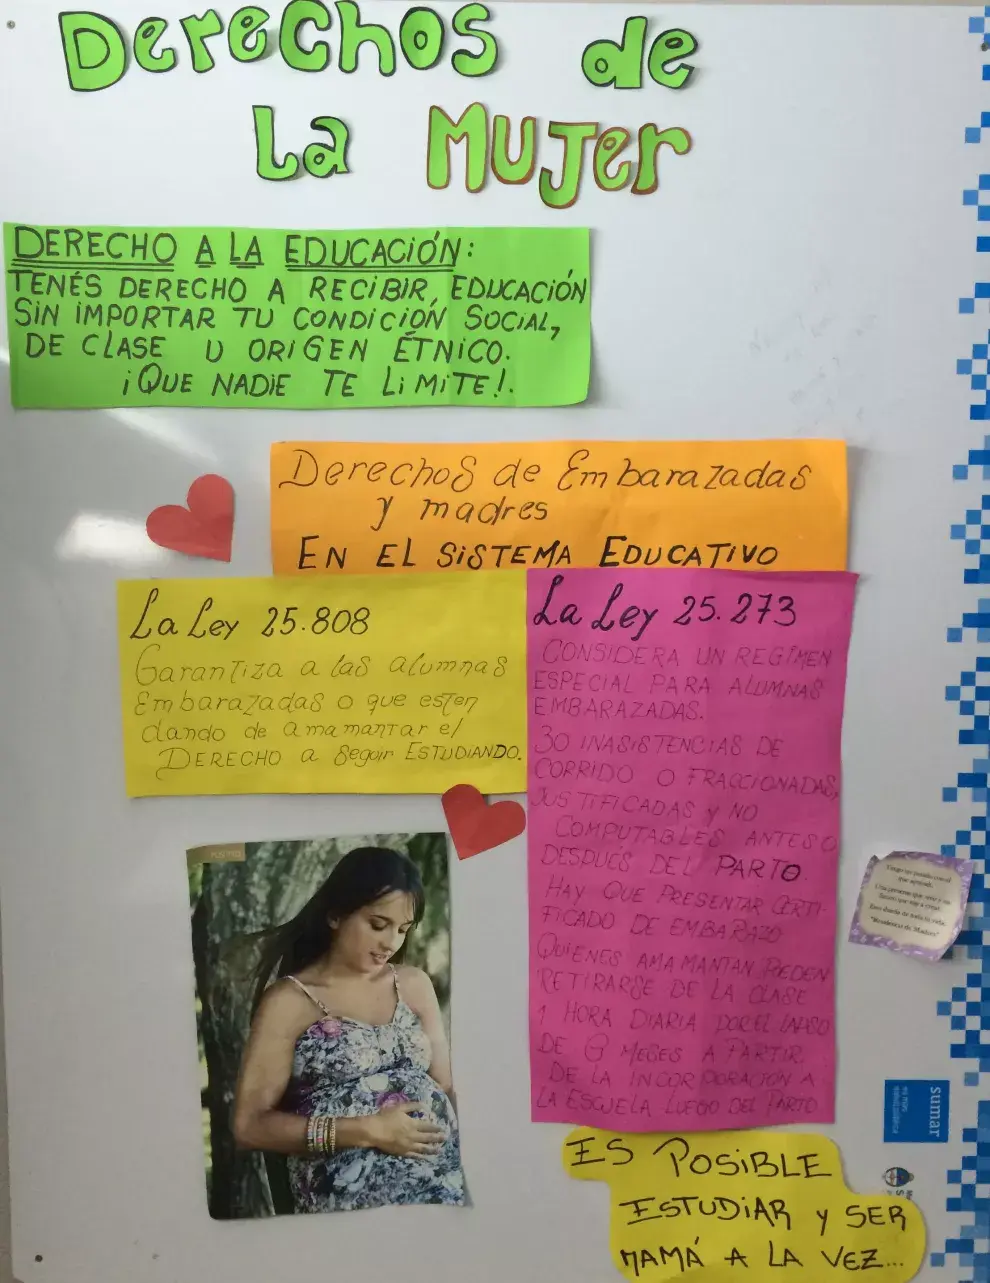 Derechos de
La Mujer
DERECHO A LA EDUCACIÓN:
TENÉS DERECHO A RECIBIR EDUCACIÓN
SIN IMPORTAR TU CONDICIÓN SOCIAL,
DE CLASE U ORIGEN ÉTNICO.
¡QUE NADIE TE LIMITE!.
Derechos de Embarazadas
y madres
EN EL SISTEMA EDUCATIVO
La Ley 25.808
Garantiza a las alumnas
Embarazadas o que esten
dando de amamantar el
DERECHO a seguir ESTUDIANDO.
La Ley 25.273
CONSIDERA UN REGIMEN
ESPECIAL PARA ALUMNAS
EMBARAZADAS.
30 INASISTENCIAS DE
CORRIDO O FRACCIONADAS,
JUSTIFICADAS y NO
COMPUTABLES ANTES O
DESPUÉS DEL PARTO.
HAY QUE PRESENTAR CERTI-
FICADO DE EMBARAZO
QUIENES AMAMANTAN PUEDEN
RETIRARSE DE LA CLASE
1 HORA DIARIA POR EL LAPSO
DE 6 MESES A PARTIR
DE LA INCORPORACIÓN A
LA ESCUELA LUEGO DEL PARTO
ES POSIBLE
ESTUDIAR y SER
MAMÁ A LA VEZ...
sumar